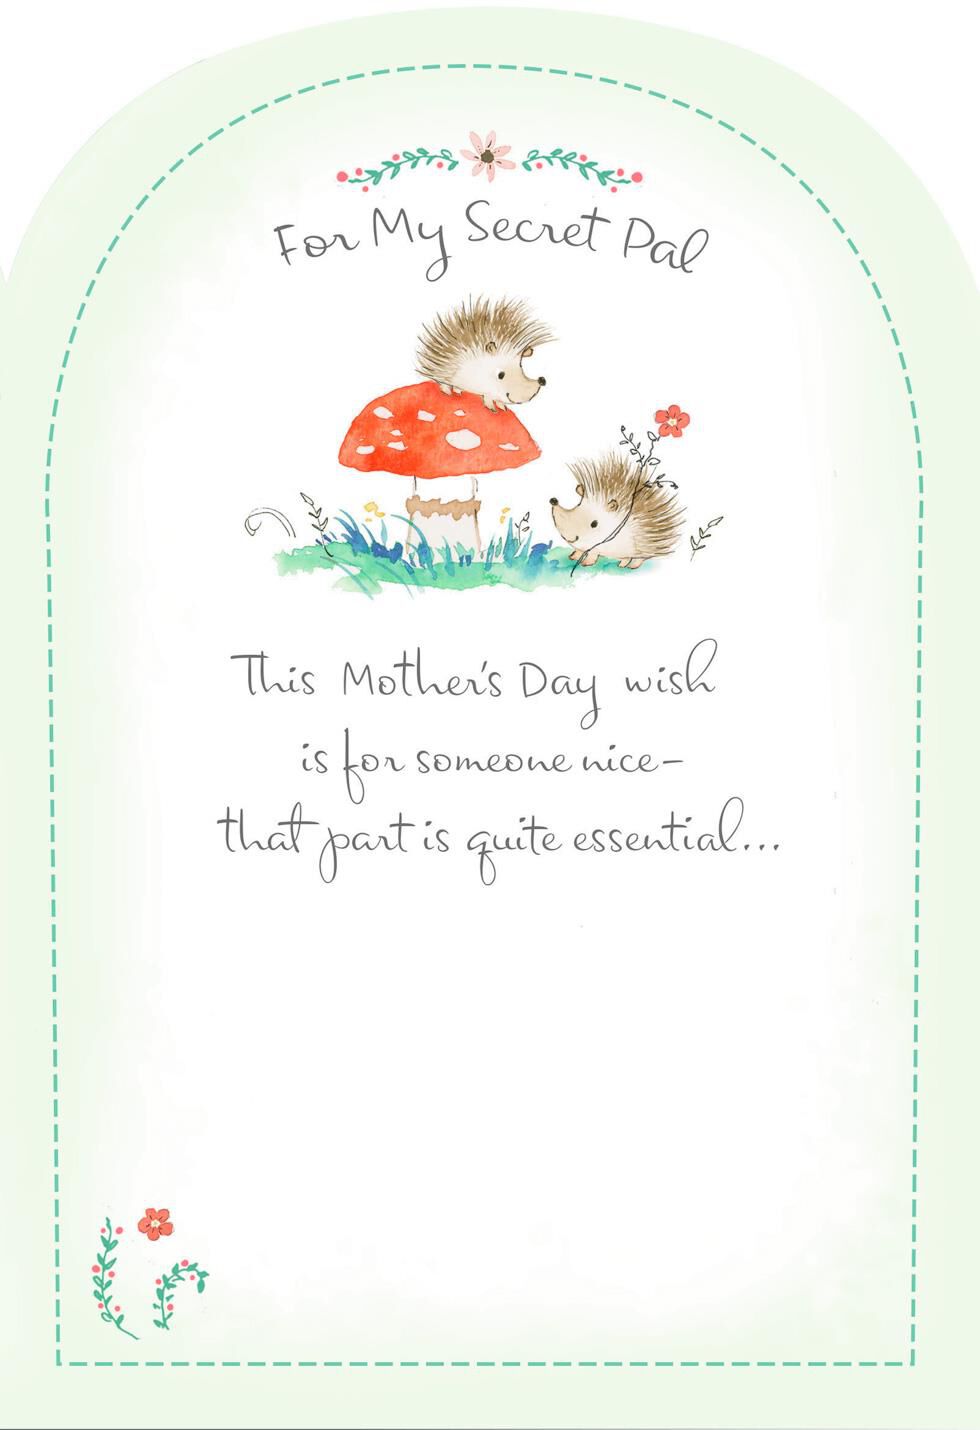 For My Secret Pal
This Mother's Day wish
is for someone nice–
that part is quite essential...